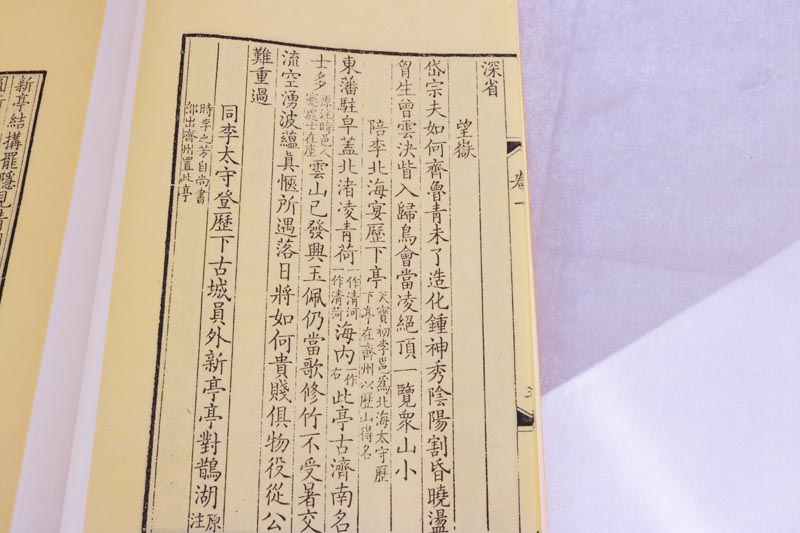 卷一
深省
望嶽
岱宗夫如何齊魯青未了造化鍾神秀陰陽割昏曉盪
胷生曾雲決眥入歸鳥會當凌絕頂一覽衆山小
陪李北海宴歷下亭天寶初李邕爲北海太守歷下亭在齊州以歷山得名
東藩駐皁蓋北渚凌青荷一作清河一作清荷海內一作右此亭古濟南名
士多原注時邑人蹇處士在座雲山已發興玉佩仍當歌修竹不受暑交
流空湧波蘊眞愜所遇落日將如何貴賤俱物役從公
難重過
同李太守登歷下古城員外新亭亭對鵲湖原注
時李之芳自尚書郎出齊州置此亭
新亭結搆罷隱見清湖